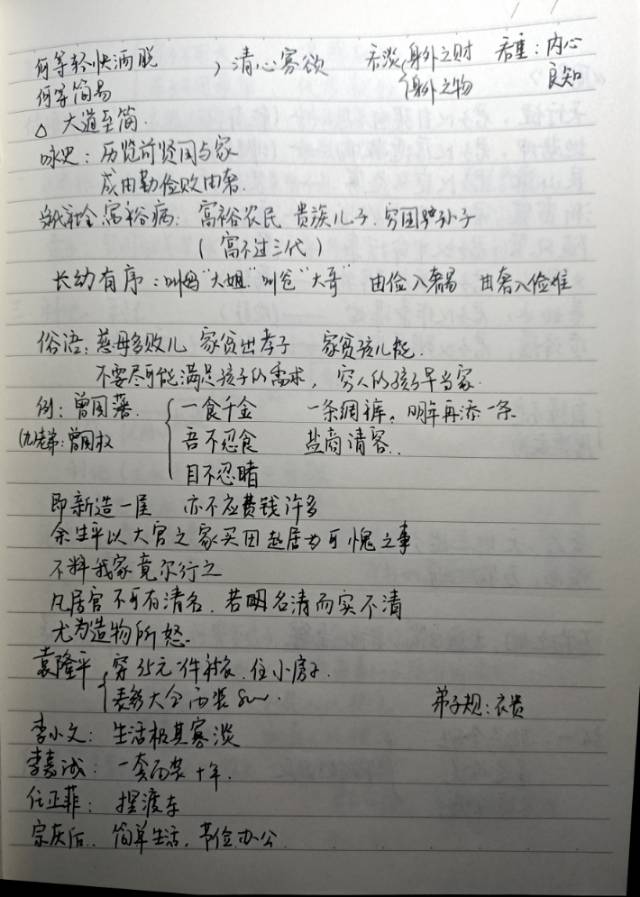 何等轻快洒脱 ) 清心寡欲 看淡(身外之财 看重:内心
何等简易 (身外之物 良知
△ 大道至简.
咏史:历览前贤国与家
成由勤俭败由奢.
富裕病:富裕农民 贵族儿子.穷困孙子
(富不过三代)
长幼有序:叫母"大姐"叫爸"大哥" 由俭入奢易 由奢入俭难
俗语:慈母多败儿 家贫出孝子 家贫孩儿能.
不要尽可能满足孩子的需求,穷人的孩子早当家.
例:曾国藩. 一食千金 一条绸裤,明年再添一条
曾国 吾不忍食 盐商请客..
目不忍睹
即新造一屋 亦不应费钱许多
余生平以大官之家买田起居为可愧之事
不料我家竟尔行之
凡居官不可有清名.若明名清而实不清
尤为造物所怒.
袁隆平 穿35元一件衬衣.住小房子.
表彰大会西装
弟子规:衣贵
李小文:生活极其寡淡
李嘉诚:一套西装十年.
任正菲:摆渡车
宗庆后.简单生活,节俭办公